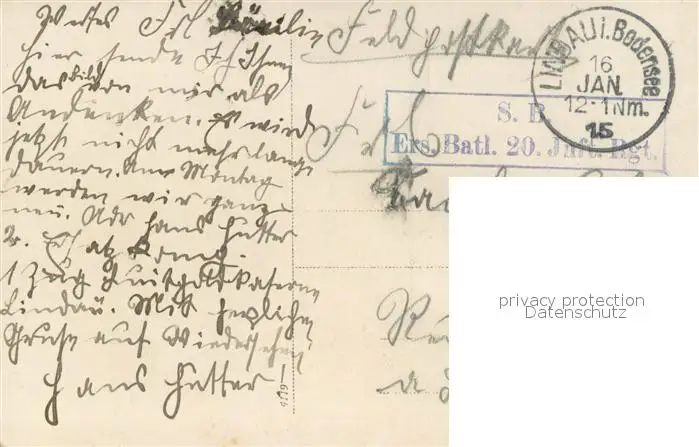 Wertes Frl
hier sende Ich Ihnen
das Bild von mir als
Andenken. Es wird
jetzt nicht mehr lange
dauern. Am Montag
werden wir ganz
neu. Adr Hans Hutter
2. Ersatz Komp.
1 Zug Luitpoldkaserne
Lindau. Mit herzlichen
Gruße auf Wiedersehen
Hans Hutter!
Feldpostkarte
LINDAU i. Bodensee
16
JAN.
12-1 Nm.
15
S. B.
Ers. Batl. 20. Inft. Rgt.
Frl
privacy protection
Datenschutz